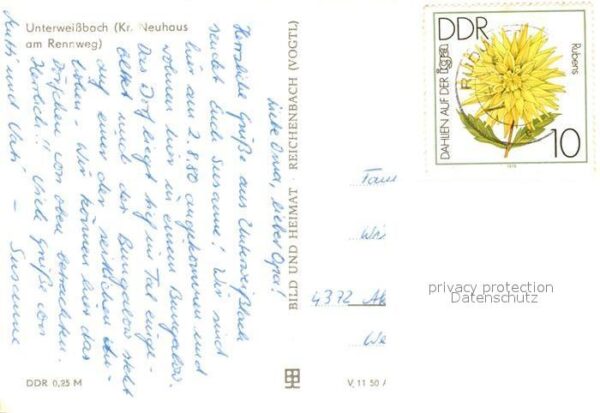 Unterweißbach (Kr. Neuhaus
am Rennweg)
Liebe Oma, lieber Opa!
Herzliche Grüße aus Unterweißbach
sendet Euch Susanne! Wir sind
hier am 2.8.80 angekommen und
wohnen hier in einem Bungalow.
Das Dorf liegt tief im Tal einge-
bettet und der Bungalow steht
auf einer der seitlichen An-
höhen - Wir können hier das
Dörfchen von oben betrachten.
Herrlich!! Viele Grüße von
Mutti und Vati - Susanne
DDR 0,25 M
BILD UND HEIMAT REICHENBACH (VOGTL)
V 11 50 A
4372
DDR
DAHLIEN AUF DER
Rubens
10
1979
privacy protection
Datenschutz